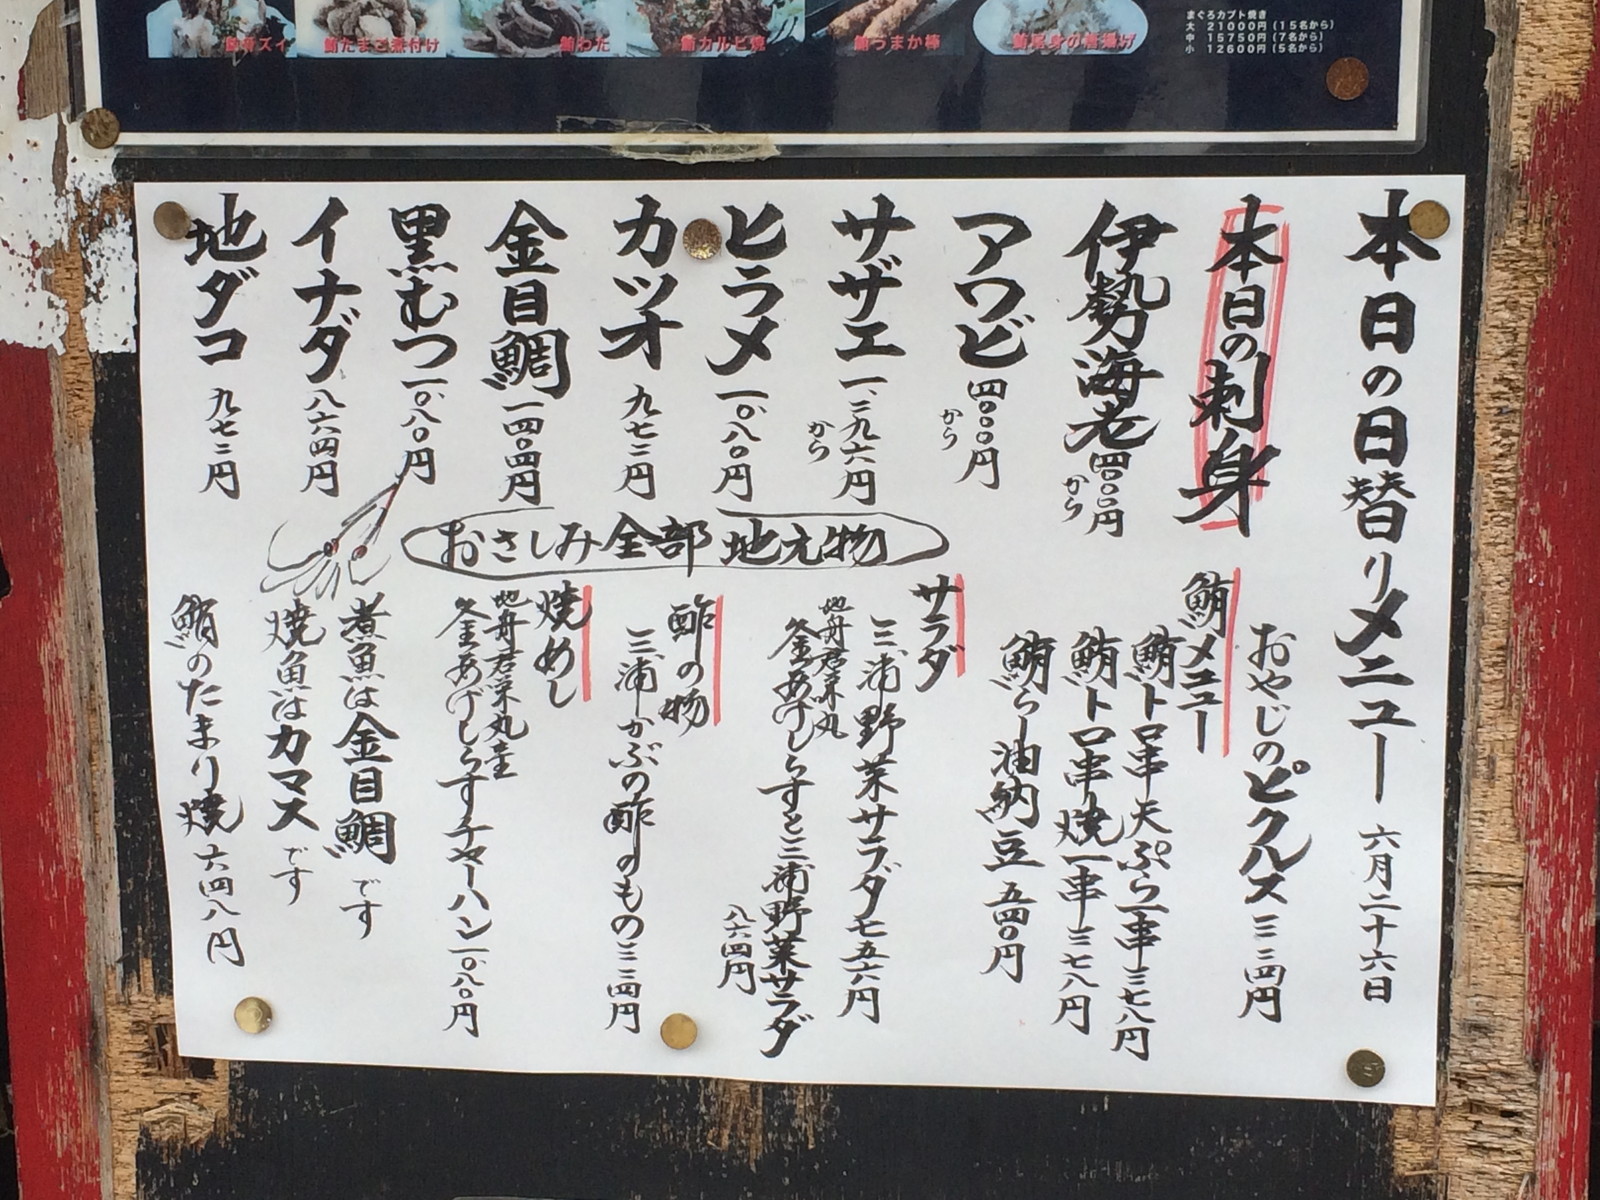 鮪たまご煮付け
鮪わた
鮪カルビ焼
鮪うまか棒
鮪尾身の唐揚げ
まぐろカブト焼き
大 21000円(15名から)
中 15750円(7名から)
小 12600円(5名から)
本日の日替りメニュー 六月二十六日
本日の刺身
伊勢海老 四〇〇〇円から
アワビ 四〇〇〇円から
サザエ 一、二九六円から
ヒラメ 一〇八〇円
カツオ 九七二円
金目鯛 一四〇四円
黒むつ 一〇八〇円
イナダ 八六四円
地ダコ 九七二円
おさしみ全部地元物
おやじのピクルス 三二四円
鮪メニュー
鮪トロ串天ぷら一串 三七八円
鮪トロ串焼一串 三七八円
鮪らー油納豆 五四〇円
サラダ
三浦野菜サラダ 七五六円
釜あげしらすと三浦野菜サラダ
八六四円
酢の物
三浦かぶの酢のもの 三二四円
焼めし
釜あげしらすチャーハン 一〇八〇円
煮魚は金目鯛です
焼魚はカマスです
鮪のたまり焼 六四八円